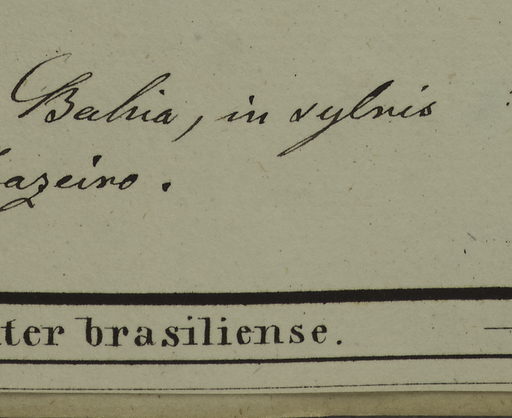 Bahia, in sylvis
azeiro.
ter brasiliense.